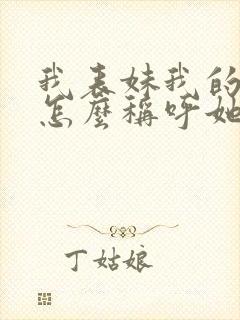 我表妹我的
怎麼稱呼她
丁姑娘